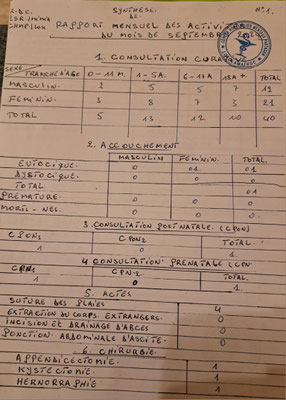 SYNTHESE. N°1.
R.D.C. DE
RAPPORT MENSUEL DES ACTIVI
AU MOIS DE SEPTEMBRE
1. CONSULTATION CURA
SEXE TRANCHE D'AGE 0-11 M. 1-5A. 6-17A 18A+ TOTAL
MASCULIN. 2 5 5 7 19
FEMININ. 3 8 7 3 21
TOTAL 5 13 12 10 40
2. ACCOUCHEMENT
MASCULIN FEMININ. TOTAL.
EUTOCIQUE. 0 01 01
DYSTOCIQUE. 0 0 0
TOTAL 01
PREMATURE. 0 0 0
MORTS-NES. 0 0 0
3. CONSULTATION POSTNATALE. (CPON)
CPON1 CPON2 TOTAL.
1 0 1
4 CONSULTATION PRENATALE (CPN
CPN1 CPN-2 TOTAL.
1 0 1
5. ACTES
SUTURE DES PLAIES 4
EXTRACTION DU CORPS ETRANGERS. 0
INCISION ET DRAINAGE D'ABCES 0
PONCTION ABDOMINALE D'ASCITE. 0
6. CHIRURGIE.
APPENDICECTOMIE 1
KYSTECTOMIE 1
HERNORRAPHIE 1